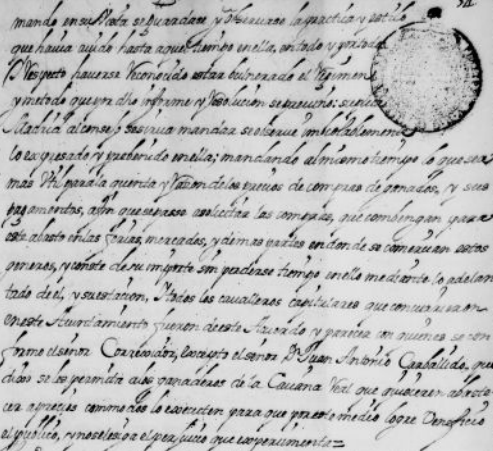 mando en su Vista se guardase, y observase la practica y estilo
que havia avido hasta aquel tiempo en ella, en todo y por todo
Respecto haverse Reconocido estar bulnerado el Regimen
y metodo que por dho informe y Resolucion se previno: suplica
Madrid al consejo se sirva mandar se observe imbiolablemente
lo expresado y prebenido en ella; mandando al mismo tiempo lo que sea
mas Util para la quenta y Razon de los precios de compras de ganados, y sus
pagamentos, a fin que se passe a solicitar las compras, que combengan para
este abasto en las ferias, mercados, y demas partes en donde se comercian estos
generos, y conste de su importe sin perderse tiempo en ello mediante lo adelan
tado de el, y su estacion, Y todos los cavalleros capitulares que concurrieron
en este Ayuntamiento fueron de este Acuerdo y parecer con quienes se con
formo el señor Correxidor, excepto el señor Dn Juan Antonio Carballido, que
dixo se les permita a los ganaderos de la Cavana Real que quisieren abaste
cer a precios commodos lo executen para que por este medio logre Beneficio
el publico, y no se le siga el perjuicio que experimenta=